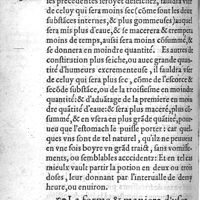 les precedentes seroyet desseichés, faudra vser
de celuy qui sera moins sec (côme sont les deux
substâces internes, & plus gommeuses) auquel
sera mis plus d'eaue, & se macerera & trempera
moins de temps, aussi sera moins côsummé, &
se donnera en moindre quantité. Es autres de
constitution plus seiche, ou auec grande quan-
tité d'humeurs excrementeuse, il faudra vser
de celuy qui sera plus sec, côme de l'escorce &
secôde substâce, ou de la troisiesme en moindre
quantité: & d'aduâtage de la premiere en moin
dre quantité: & se sera plus maceré, plus cô-
summé, & en vsera en plus grâde quâtité, pour-
ueu que l'estomach le puisse porter: car quel-
ques vns sont de tel naturel, qu'ils ne peuuent
en vne fois boyre vn grâd traict, sans vo-
missemês, ou semblables accidents: Et en tel cas
mieulx vault partir la potion en deux ou trois
doses, leur donnant par l'interualle de demy
heure, ou enuiron.
La forme & maniere d'vser